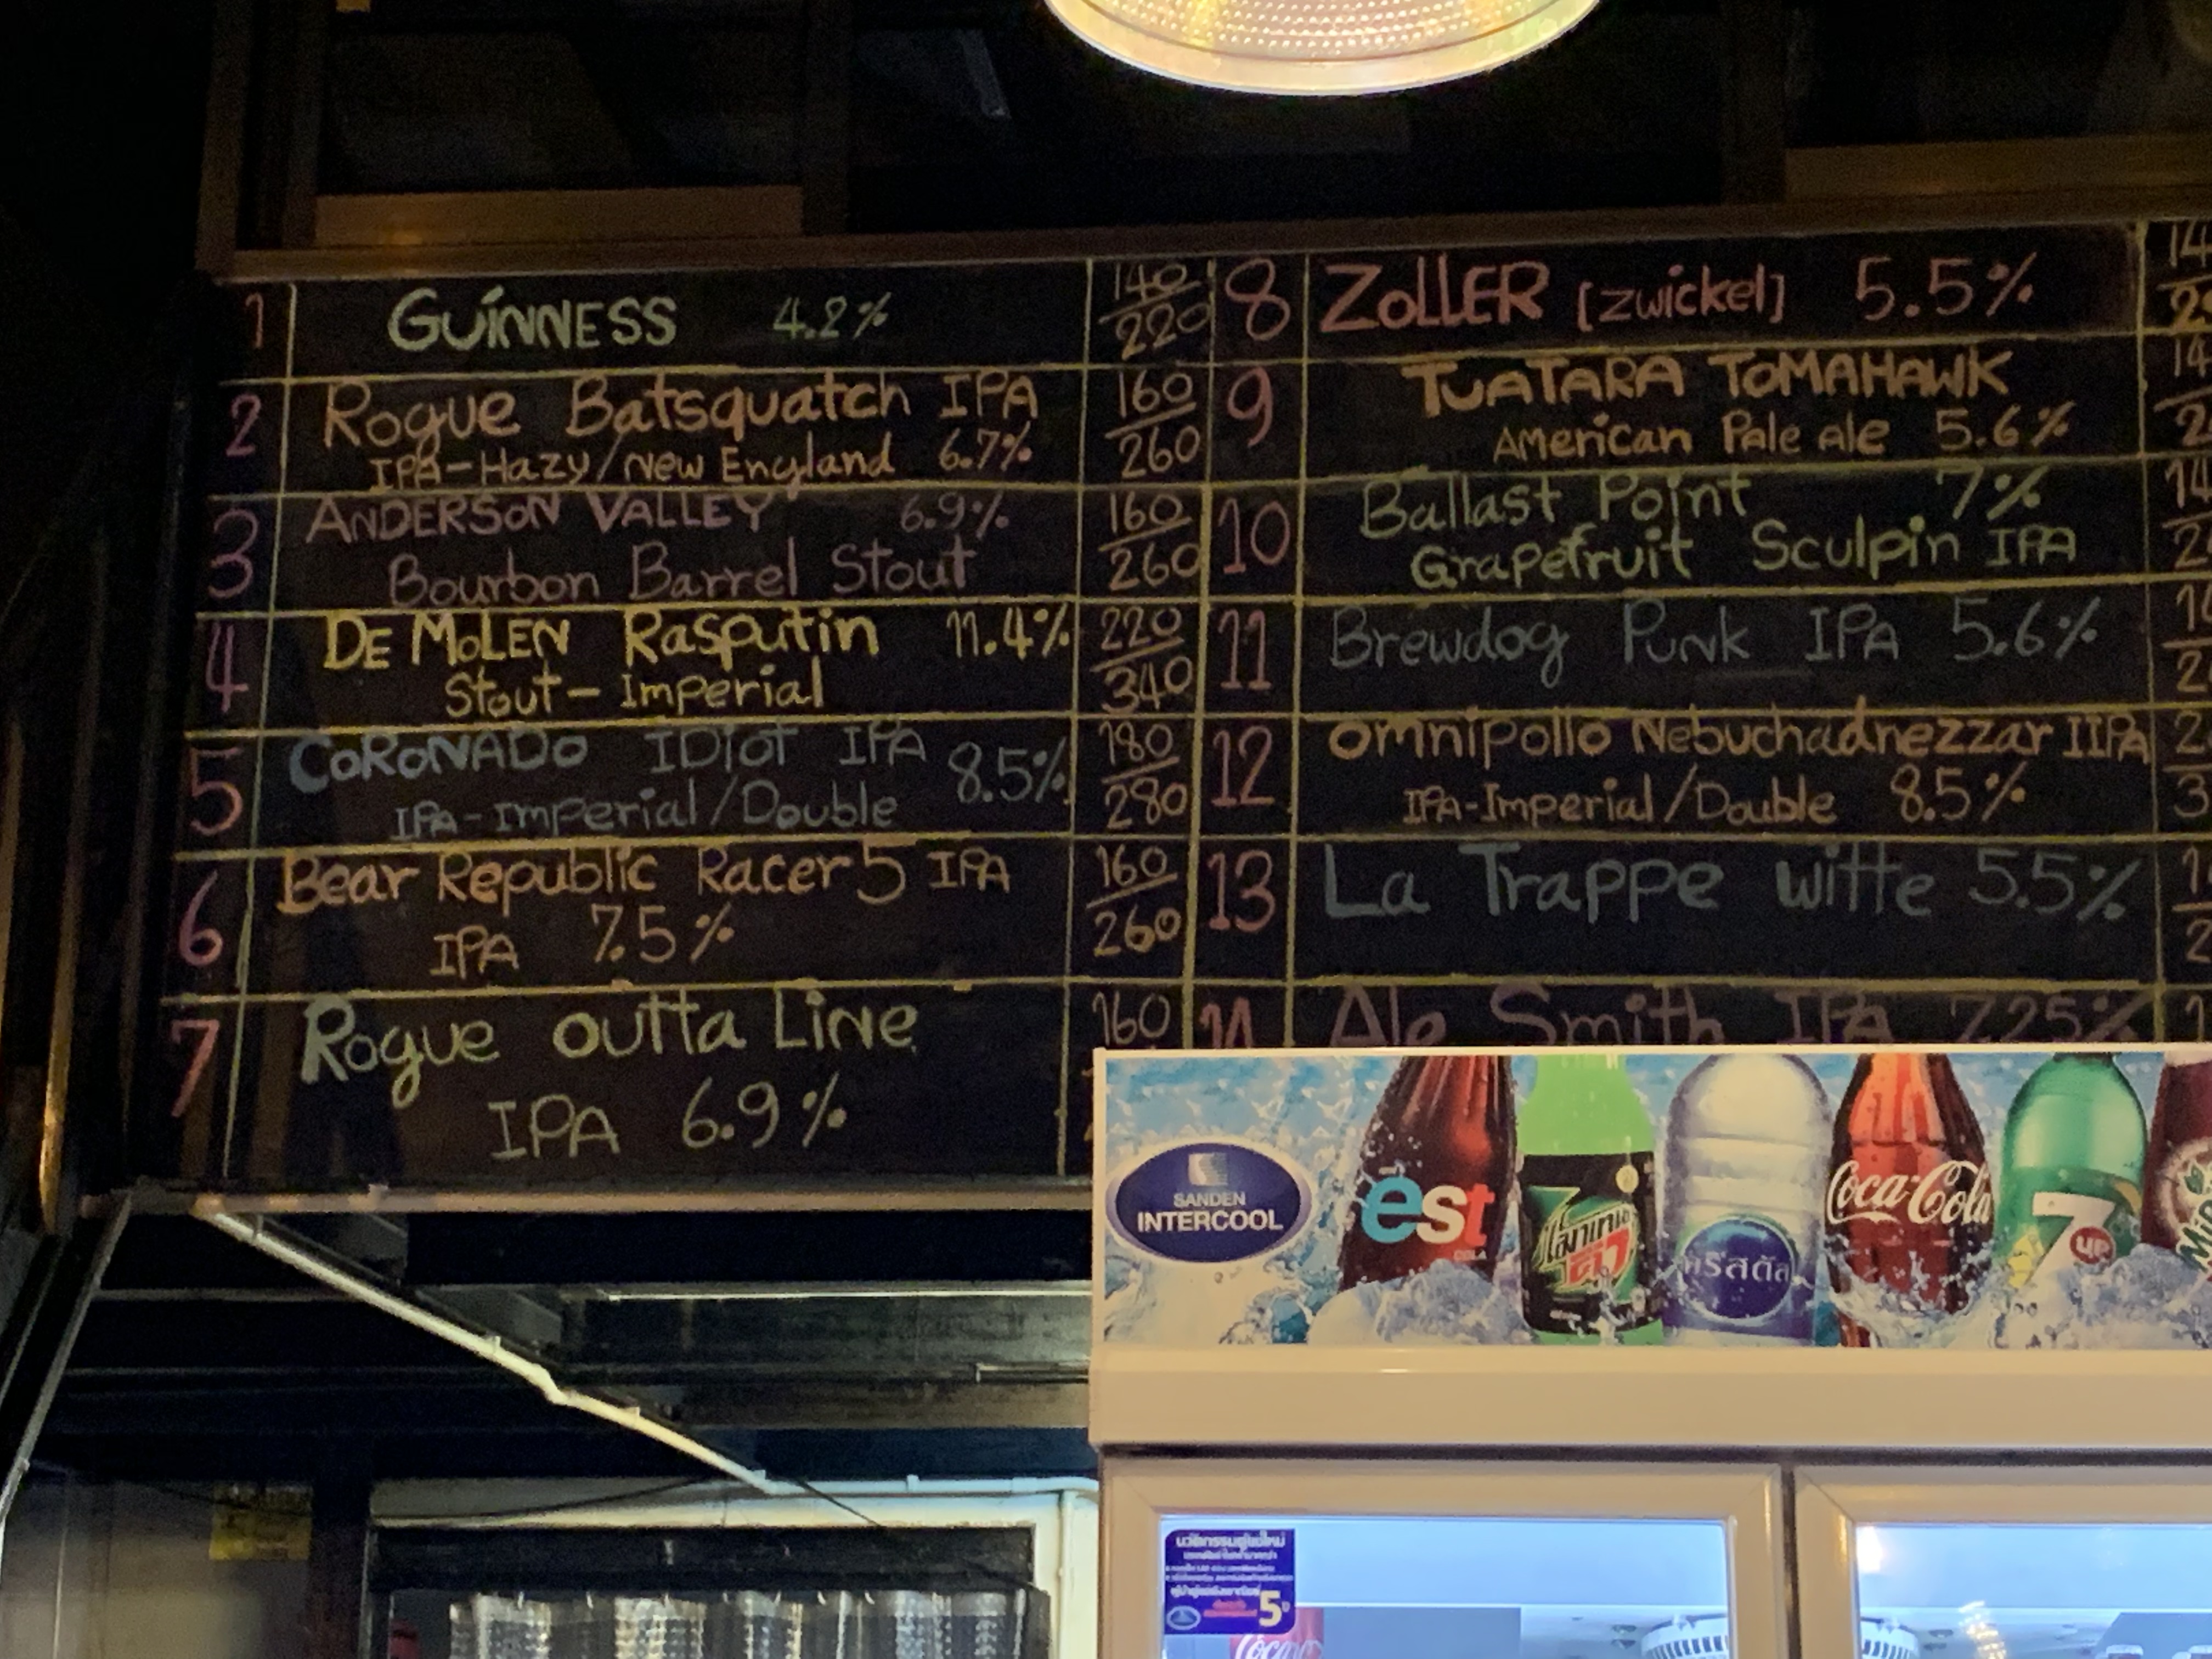 1 GUINNESS 4.2% 140
220
2 Rogue Batsquatch IPA 160
IPA-Hazy/New England 6.7% 260
3 ANDERSON VALLEY 6.9% 160
Bourbon Barrel Stout 260
4 DE MOLEN Rasputin 11.4% 220
Stout-Imperial 340
5 CORONADO IDiot IPA 8.5% 180
IPA-Imperial/Double 280
6 Bear Republic Racer 5 IPA 160
IPA 7.5% 260
7 Rogue outta Line 160
IPA 6.9%
8 ZOLLER [Zwickel] 5.5%
9 TUATARA TOMAHAWK
American Pale Ale 5.6%
10 Ballast Point 7%
Grapefruit Sculpin IPA
11 Brewdog Punk IPA 5.6%
12 omnipollo Nebuchadnezzar IIPA
IPA-Imperial/Double 8.5%
13 La Trappe witte 5.5%
14 Ale Smith IPA 7.25%
SANDEN
INTERCOOL
est
COLA
คริสตัล
Coca-Cola
7
UP
5